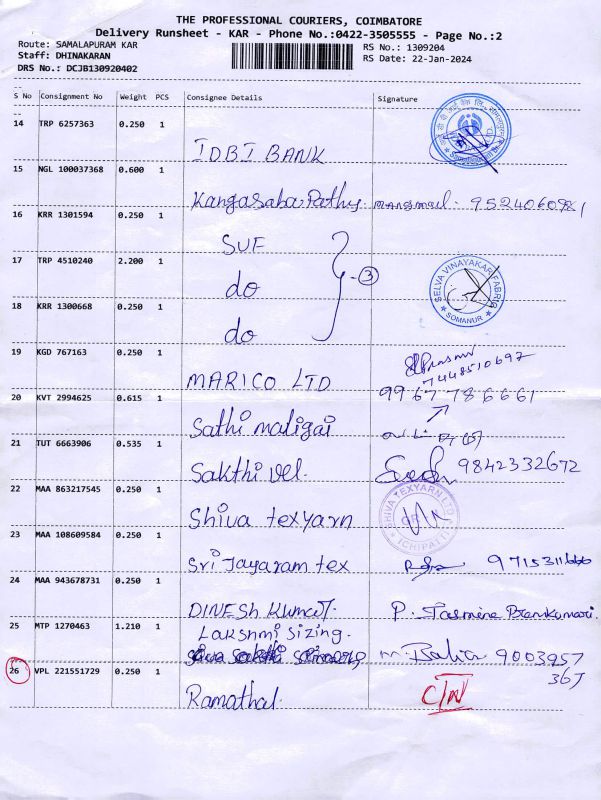 THE PROFESSIONAL COURIERS, COIMBATORE
Delivery Runsheet - KAR - Phone No.:0422-3505555 - Page No.:2
Route: SAMALAPURAM KAR
RS No.: 1309204
Staff: DHINAKARAN
RS Date: 22-Jan-2024
DRS No.: DCJB130920402
S No Consignment No Weight PCS Consignee Details Signature
14 TRP 6257363 0.250 1
IDBI BANK
15 NGL 100037368 0.600 1
Kangasaba Pathy 9524060981
16 KRR 1301594 0.250 1
SUF
17 TRP 4510240 2.200 1
do 3
SELVA VINAYAKAR FABRIC
SOMANUR
18 KRR 1300668 0.250 1
do
19 KGD 767163 0.250 1
MARICO LTD 7448510697
20 KVT 2994625 0.615 1
9967786661
Sathi maligai
21 TUT 6663906 0.535 1
Sakthi vel. 9842332672
22 MAA 863217545 0.250 1
Shiva texyarn
SHIVA TEXYARN LTD
23 MAA 108609584 0.250 1
Sri Jayaram tex 9715311666
24 MAA 943678731 0.250 1
DINESH Kumar. P. Jasmine Premkumari.
25 MTP 1270463 1.210 1
Lakshmi Sizing.
9003957
365
26 VPL 221551729 0.250 1
Ramathal.